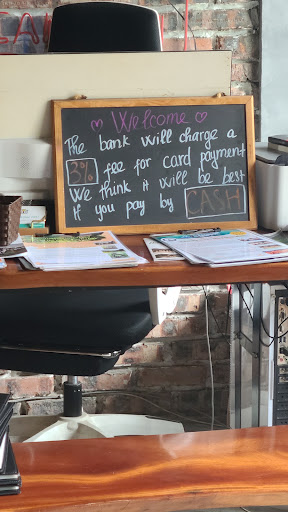 ♡ Welcome ♡
The bank will charge a
3% fee for card payment
We think it will be best
if you pay by CASH